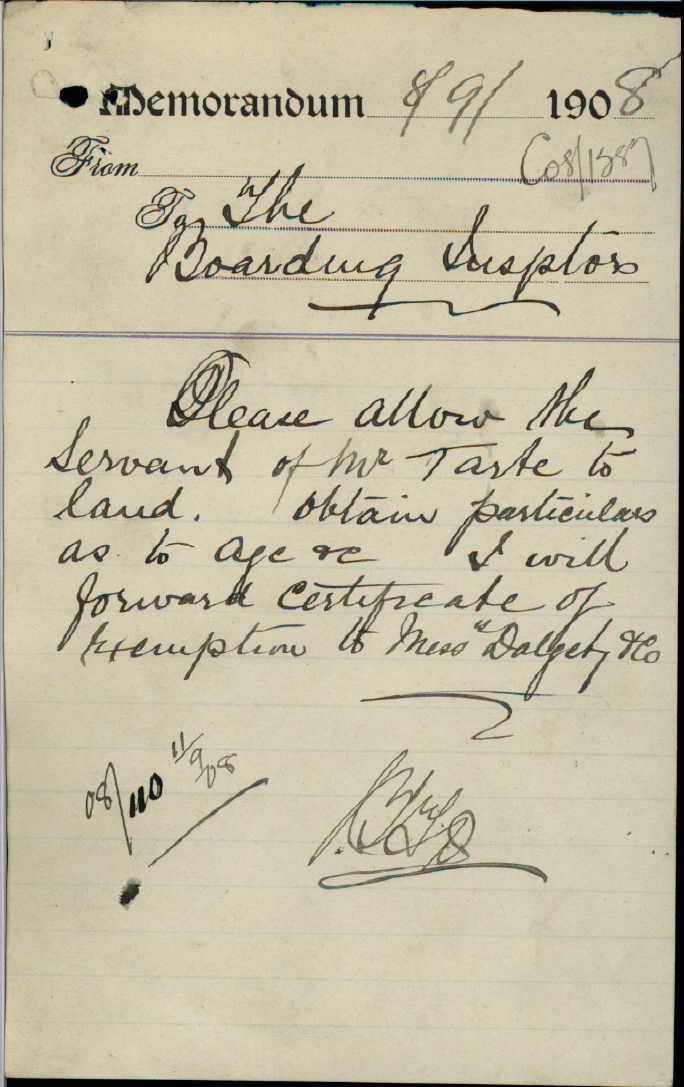 Memorandum 8/9/ 1908
From
C08/1387
To The
Boarding Insptors
Please allow the
Servant of Mr Tarte to
land. Obtain particulars
as to age &c I will
forward Certificate of
Exemption to Mess" Dalgety &Co
08/110 11/9/08